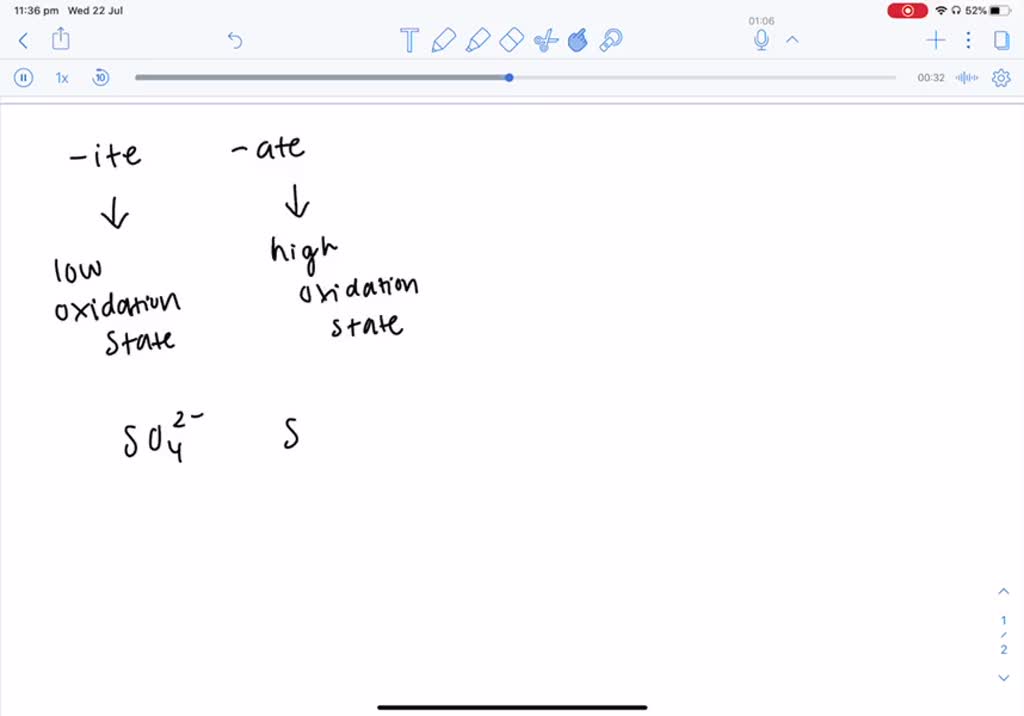 11:36 pm Wed 22 Jul 52%
01:06
T
1x 10 00:32
-ite -ate
↓ ↓
low
oxidation
state
high
oxidation
state
SO₄²⁻ S
1
/
2